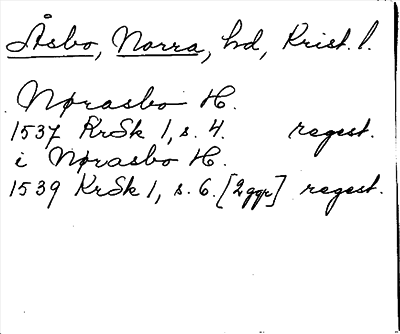 Åsbo, Norra, hd, Krist. l.
Nørasbo H.
1537 KrSk 1, s. 4. regest.
i Nørasbo H.
1539 KrSk 1, s. 6. [2ggr] regest.